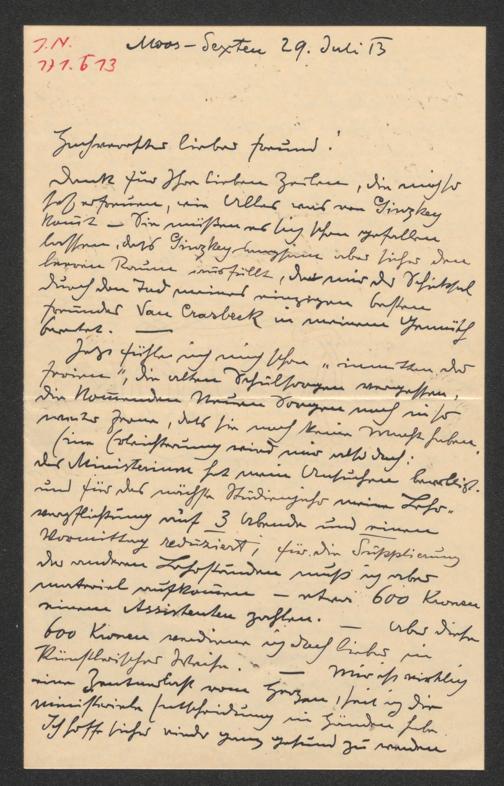 J.N.
171.613
Moos–Sexten 29. Juli 13
Hochverehrter lieber Freund!
Dank für Ihre lieben Zeilen, die mich so
sehr erfreuen, wie Alles was von Ginzkey
komt – Sie müßen es sich schon gefallen
lassen, dass Ginzkey langsam aber sicher den
leeren Raum ausfüllt, den mir das Schicksal
durch den Tod meines einzigen besten
Freundes Van Crasbeck in meinem Gemüth
bereitet. —
Jetzt fühle ich mich schon "inmitten der
Ferien", die alten Schulsorgen vergessen,
die kommenden Neuen Sorgen noch in so
weiter Ferne, dass sie noch keine Macht haben.
Eine Erleichterung wird mir allerdings:
das Ministerium hat mein Ansuchen bewilligt
und für das nächste Studienjahr meine Lehr-
verpflichtung auf 3 Abende und einen
Vormittag reduziert; für die Supplierung
der anderen Lehrstunden muß ich aber
materiel aufkommen – etwa 600 Kronen
einem Assistenten zahlen. — Aber diese
600 Kronen verdiene ich doch lieber in
Künstlerischer Weise. — Mir ist wirklich
eine Zentnerlast vom Herzen, seit ich die
ministerielle Entscheidung in Händen habe.
Ich hoffe sicher wieder ganz gesund zu werden